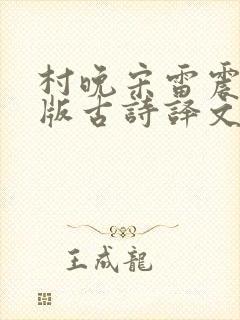 村晚宋雷震
版古詩譯文
王成龍